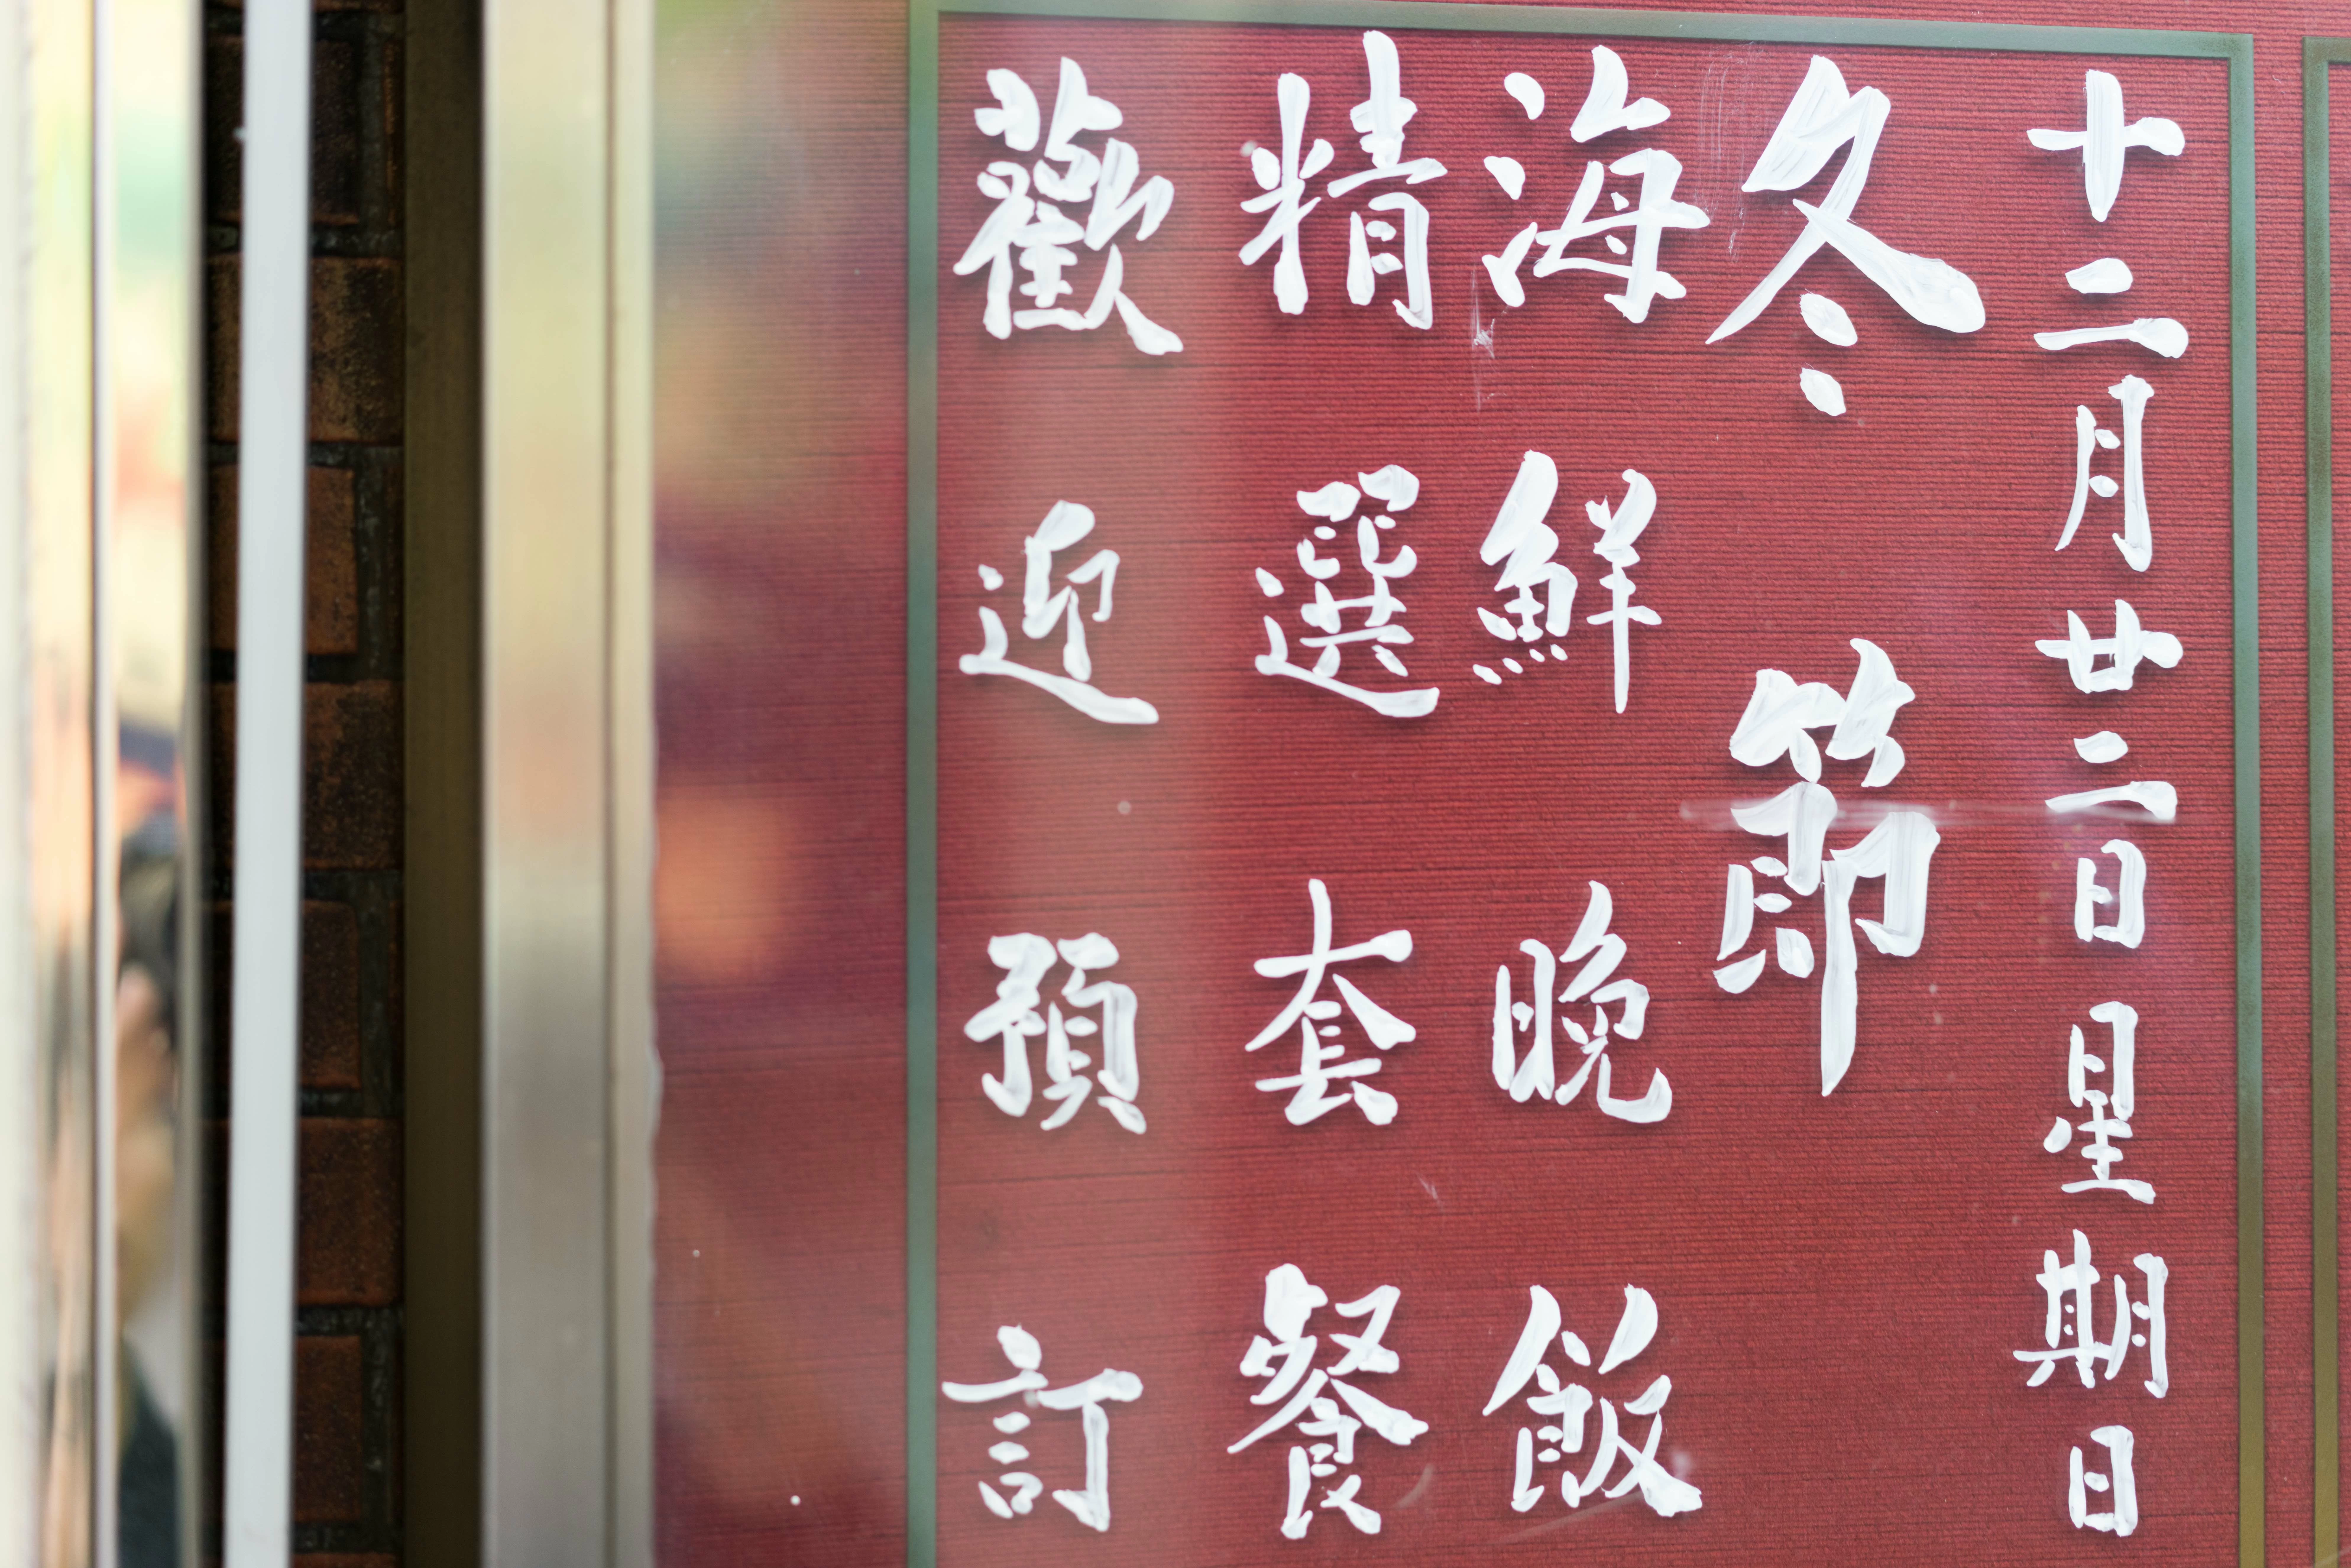 十二月廿二日星期日
冬節
海鮮晚飯
精選套餐
歡迎預訂